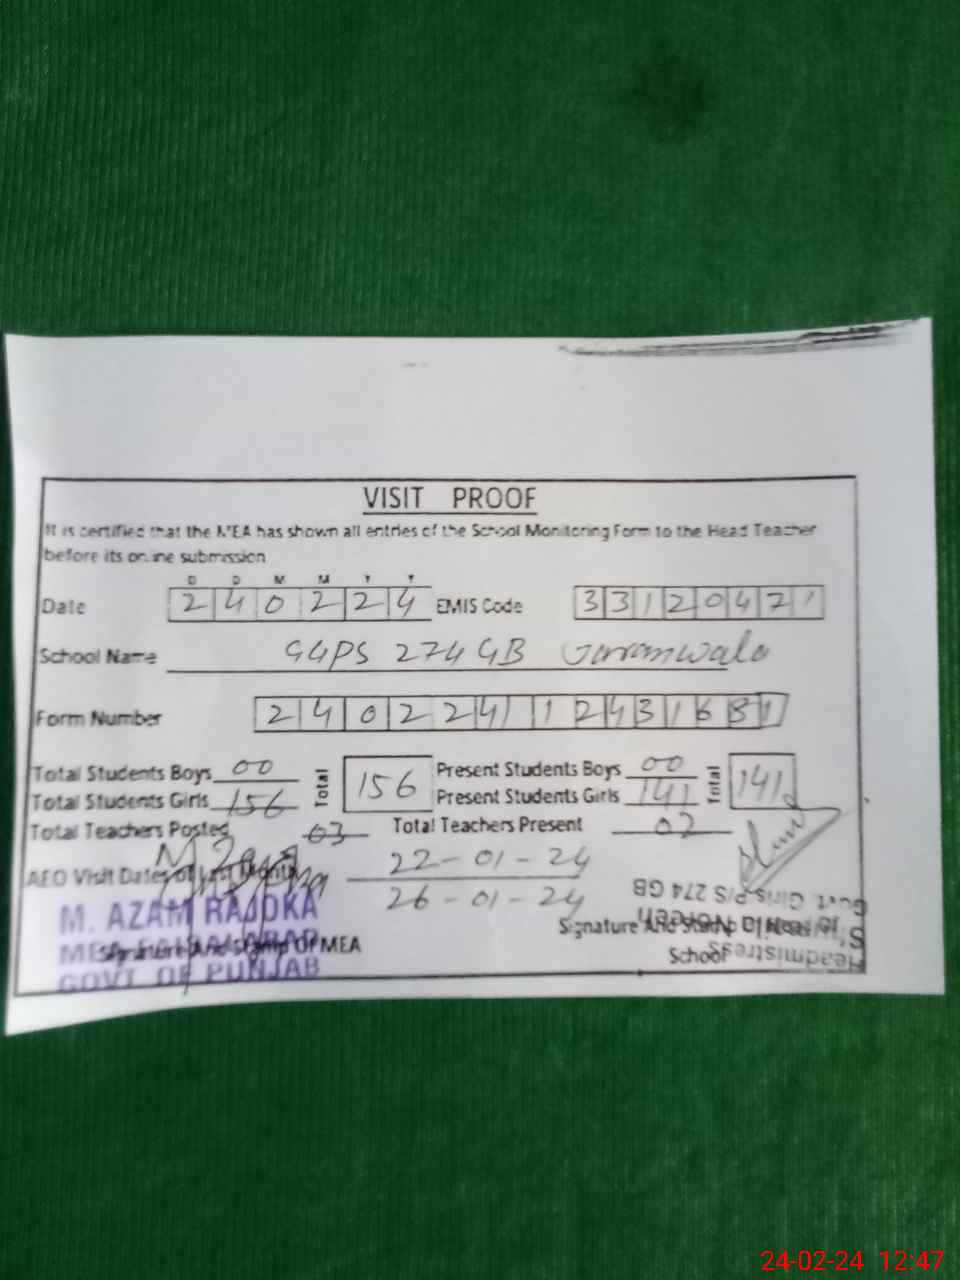 VISIT PROOF
It is certified that the MEA has shown all entries of the School Monitoring Form to the Head Teacher
before its online submission
D D M M Y Y
Date 240224 EMIS Code 33120471
School Name GGPS 274 GB Jaranwala
Form Number 240224112431681
Total Students Boys 00 Total 156 Present Students Boys 00 Total 141
Total Students Girls 156 Present Students Girls 141
Total Teachers Posted 03 Total Teachers Present 02
AEO Visit Dates of Last Month 22-01-24
26-01-24
M. AZAM RAJOKA
MEA FAISALABAD
GOVT OF PUNJAB
Signature And Stamp Of MEA
Signature And Stamp Of Head of
School
Headmistress
Govt. Girls P/S 274 GB
24-02-24 12:47